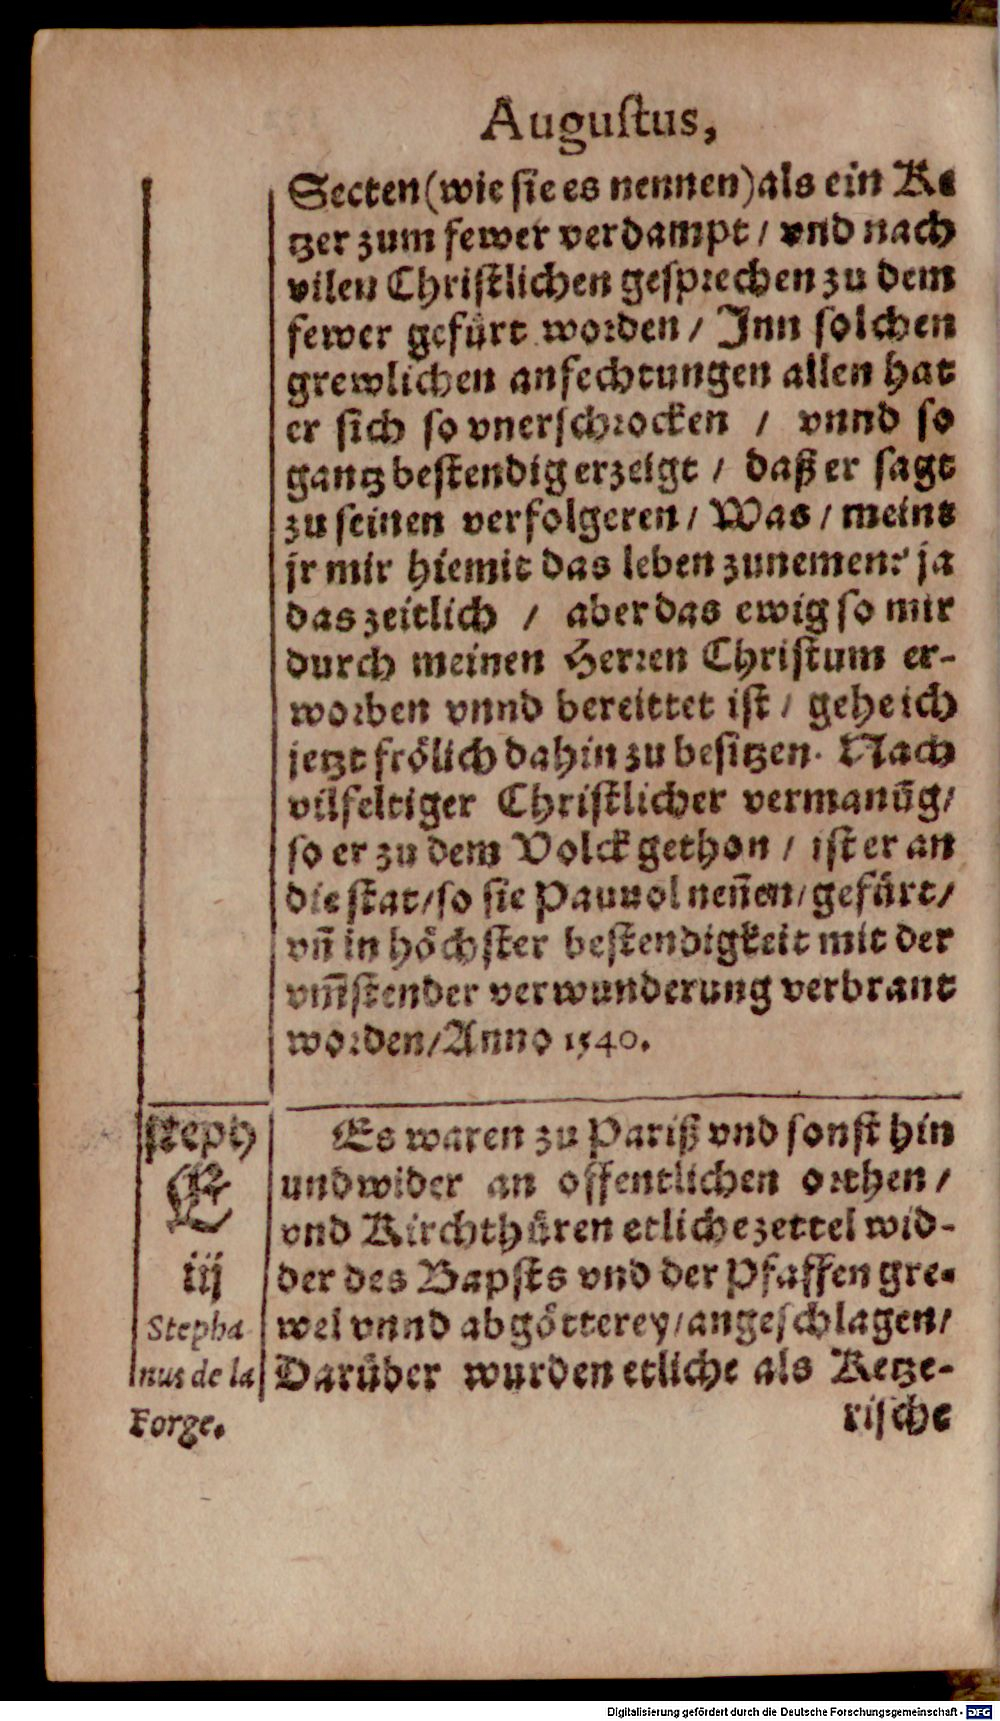 Augustus,
Secten (wie sie es nennen) als ein Ke
tzer zum fewer verdampt / vnd nach
vilen Christlichen gesprechen zu dem
fewer gefürt worden / Inn solchen
grewlichen anfechtungen allen hat
er sich so vnerschrocken / vnnd so
gantz bestendig erzeigt / daß er sagt
zu seinen verfolgeren / Was / meint
jr mir hiemit das leben zunemen? ja
das zeitlich / aber das ewig so mir
durch meinen Herren Christum er-
worben vnnd bereittet ist / gehe ich
jetzt frölich dahin zu besitzen. Nach
vilfeltiger Christlicher vermanūg /
so er zu dem Volck gethon / ist er an
die stat / so sie Pauuol neñen / gefürt /
vñ in höchster bestendigkeit mit der
vm̃stender verwunderung verbrant
worden / Anno 1540.
Es waren zu Pariß vnd sonst hin
und wider an offentlichen orthen /
vnd Kirchthüren etliche zettel wid-
der des Bapsts vnd der Pfaffen gre-
wel vnnd abgötterey / angeschlagen /
Darüber wurden etliche als Ketze-
rische
steph
E
iij
Stepha
nus de la
Forge.
Digitalisierung gefördert durch die Deutsche Forschungsgemeinschaft - DFG